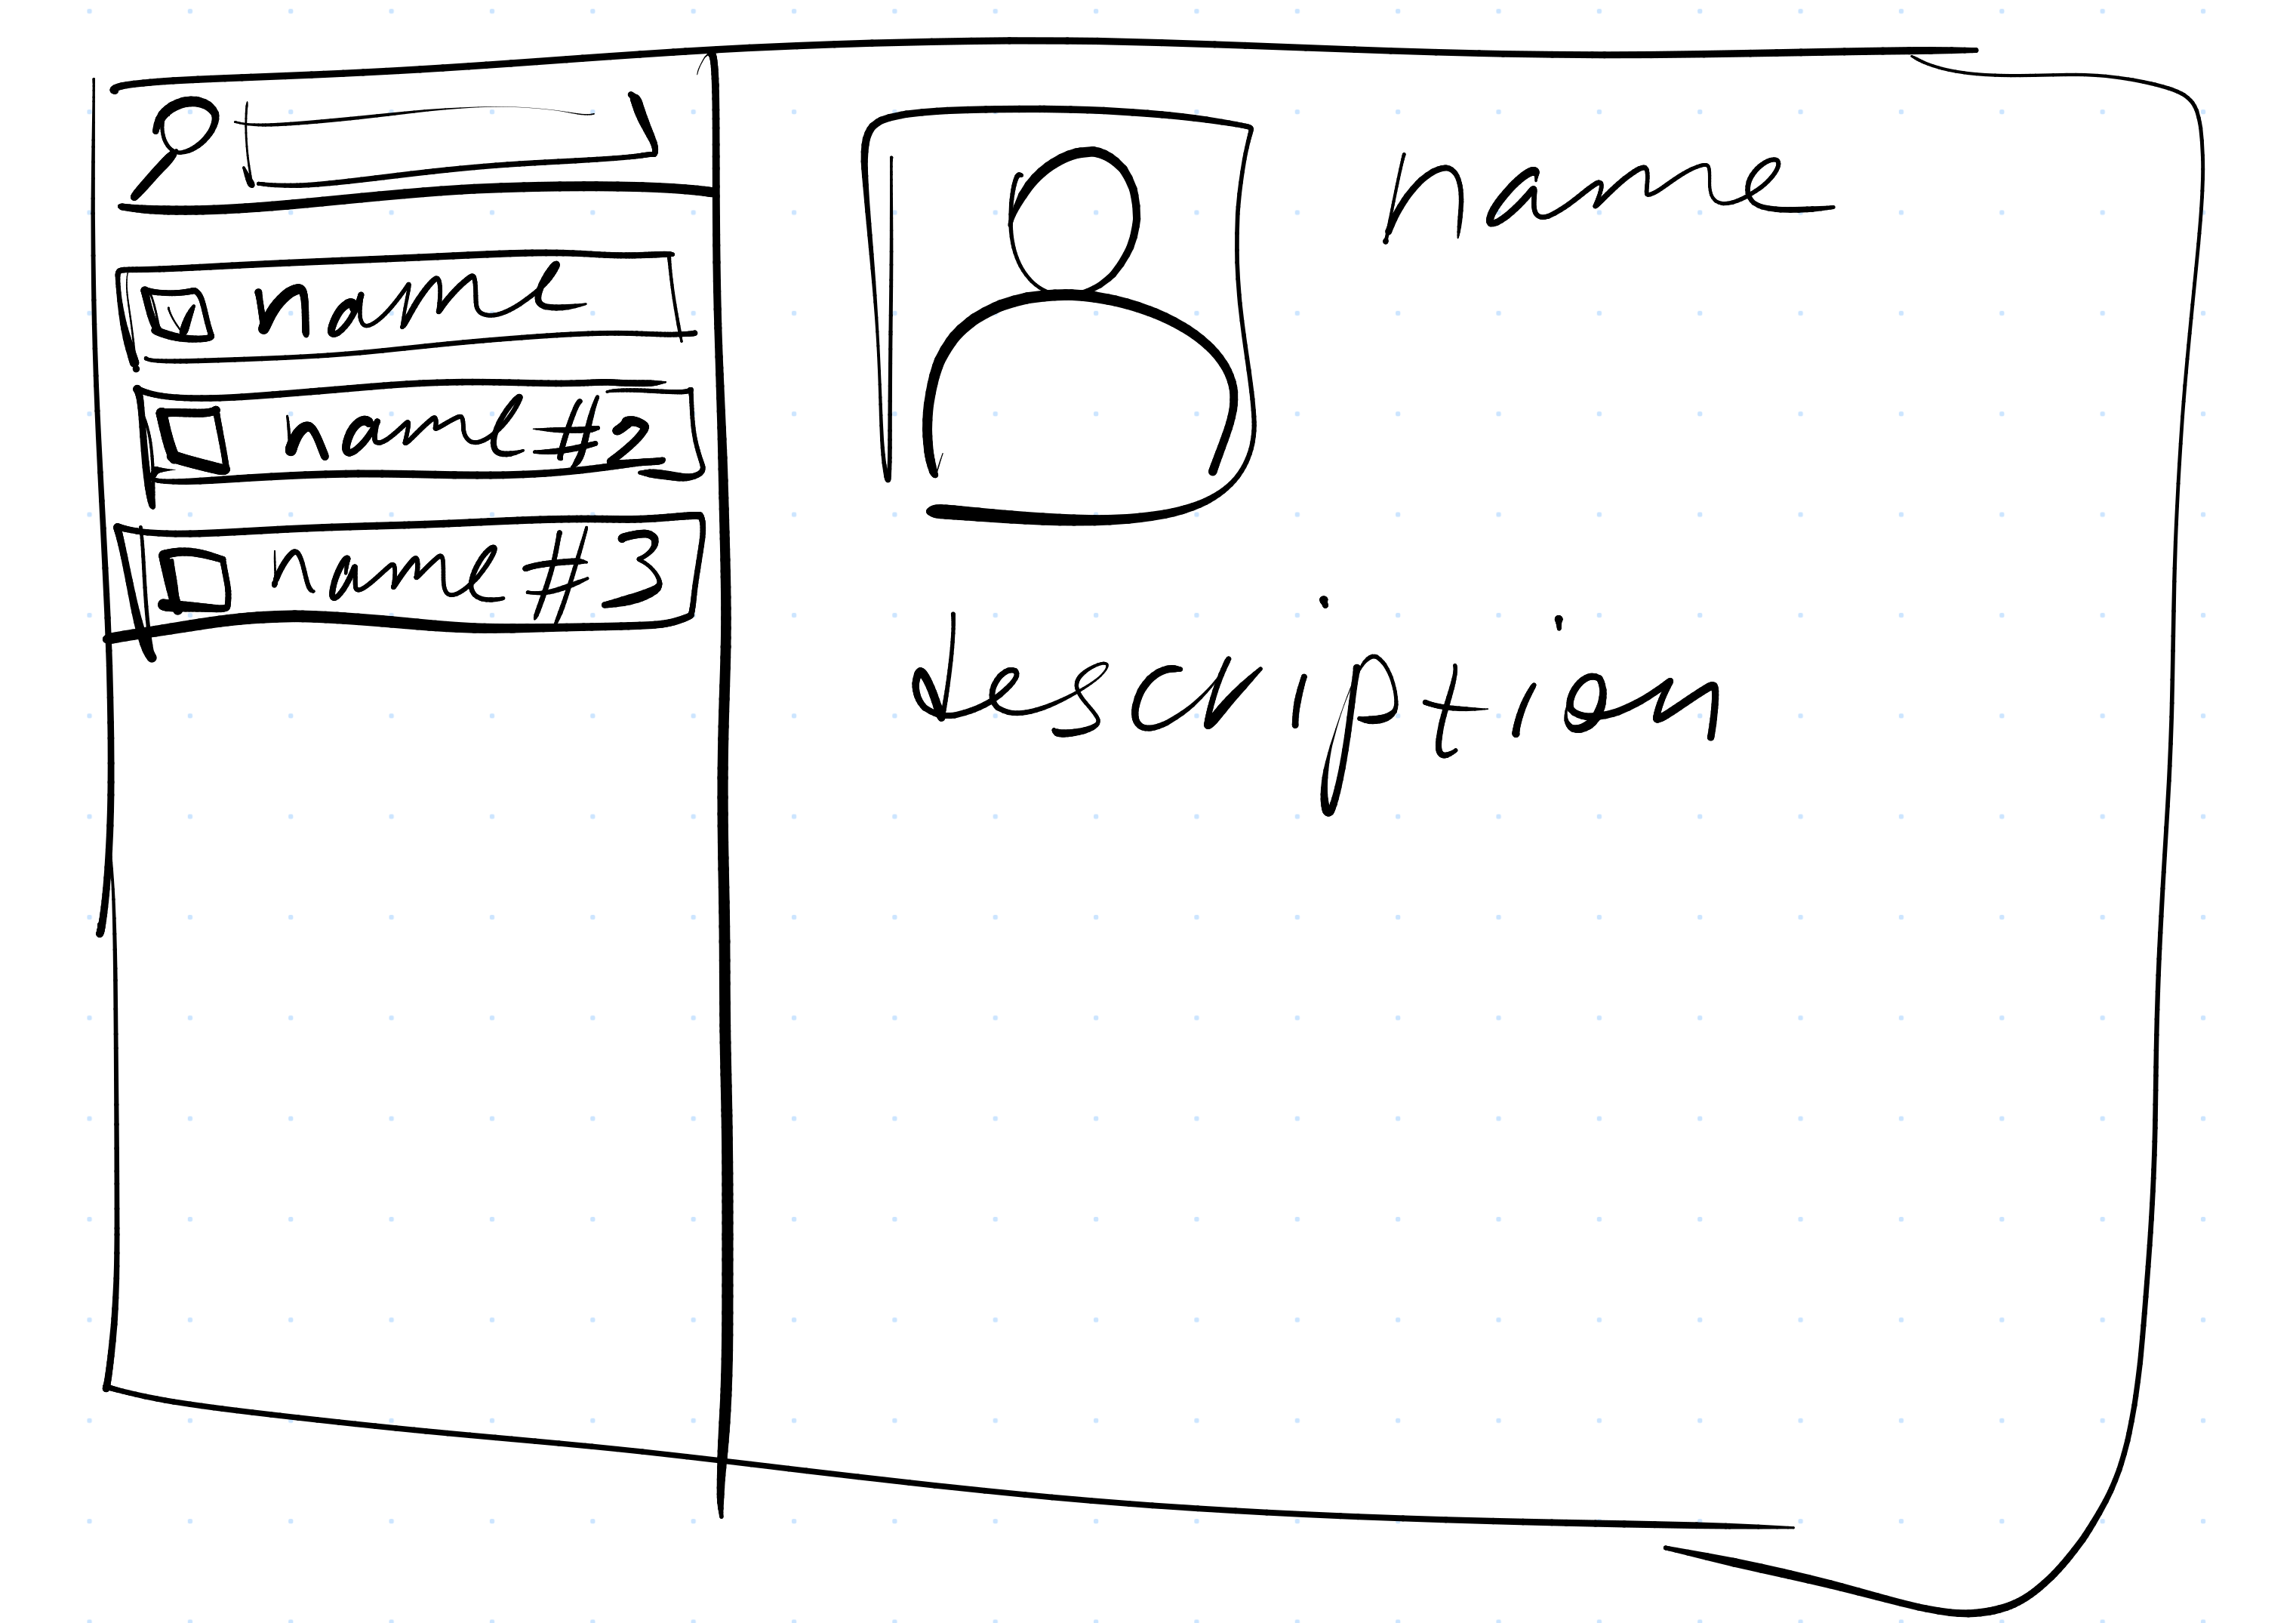 name
name #2
name #3
name
description